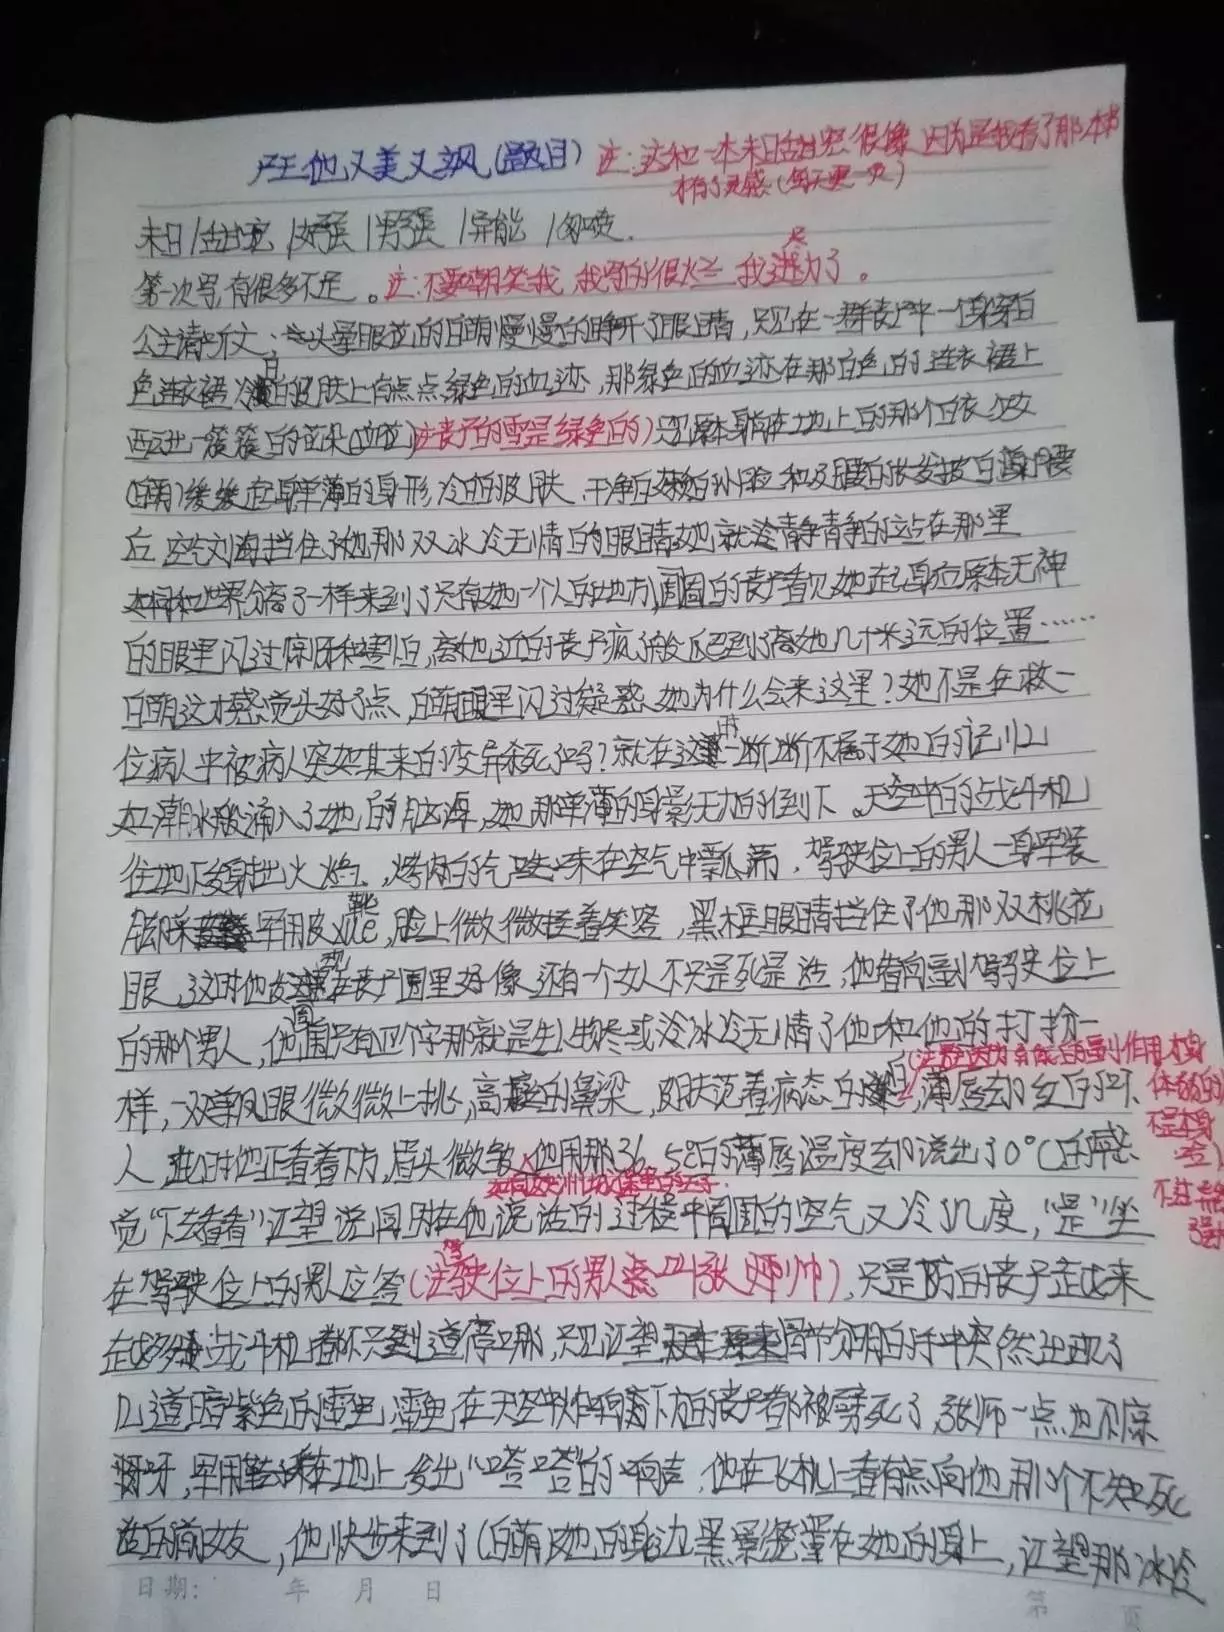 他又美又飒(题目) 注:这和一本末日甜宠很像,因为是我看了那本书
才有了灵感(每天更一页)
末日/甜宠/女强/男强/异能/勿喷.
第一次写,有很多不足。注:不要嘲笑我,我写的很烂,我尽力了。
公主请听文:头晕眼花的白萌慢慢的睁开了眼睛,只见在一群丧尸中一个身穿白
色连衣裙冷白的皮肤上有点点绿色的血迹,那绿色的血迹在那白色的连衣裙上
一簇簇的花朵(血花)(注丧子的雪是绿色的)只见原本身躺在地上的那个白衣少女
(白萌)缓缓起身单薄的身形,冷白的皮肤,干净的小脸和及腰的长发披白萌腰
后,空气刘海挡住了她那双冰冷无情的眼睛她就冷静静静的站在那里
同和世界分离了一样来到了只有她一个人的地方,周围的丧尸看见她起身后原本无神
的眼里闪过惊讶和害怕,离他近的丧子疯了般爬到离她几十米远的位置……
白萌这才感觉头好了点,白萌眼里闪过疑惑,她为什么会来这里?她不是在救一
位病人中被病人突如其来的变异杀死了吗?就在这时一断断不属于她的记忆
如潮水般涌入了她的脑海,她那单薄的身影无力的倒下。天空中的战斗机
往地下发射出火焰,烤肉的气味在空气中飘荡,驾驶位上的男人一身军装
脚踩军用皮xue靴,脸上微微挂着笑容,黑框眼睛挡住了他那双桃花
眼,这时他发现在丧尸围里好像还有一个女人不只是死是活,他看向副驾驶位上
的那个男人,他周围只有四个字那就是生人勿尽或冷冰冷无情了他和他的打扮一
样,一双丹凤眼微微上挑,高挺的鼻梁,皮肤范着病态的白,薄唇却红的吓
人,此时他正看着下方,眉头微皱,他用那36.5℃的薄唇温度却流出了0℃的感
觉"下去看看"江望说,同时在他说话的过程中周围的空气又冷了几度,"是"坐
在驾驶位上的男人应答(注驾驶位上的男人叫张师帅),只是下方的丧子越来
越多战斗机都不只到道停哪,只见江望骨节分明的手中突然出现了
几道暗紫色的雷电,雷电在天空中作响下方的丧子都被劈死了,张师一点也不惊
讶呀,军用靴踩在地上,发出"嗒嗒"的响声,他在飞机上看有点向他那个不知死
活的前女友,他快步来到了(白萌)她的身边,黑影笼罩在她的身上,江望那冰冷
日期: 年 月 日
第 页